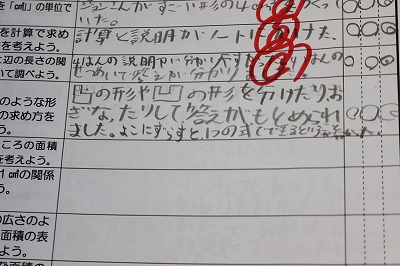 を「㎠」の単位で
いた。
を計算で求め
を考えよう。
計算と説明がノートにかけた。
と辺の長さの関
いて調べよう。
4はんの説明が分かりやすかった
せつめいして答えが分かりました
のような形
の求め方を
う。
凸の形や凹の形を分けたりお
ぎなったりして答えがもとめられ
ました。よこにずらすと、1つの式でできる
ころの面積
を考えよう。
1㎠の関係
う。
の広さのよ
面積の表
う。
な面積の